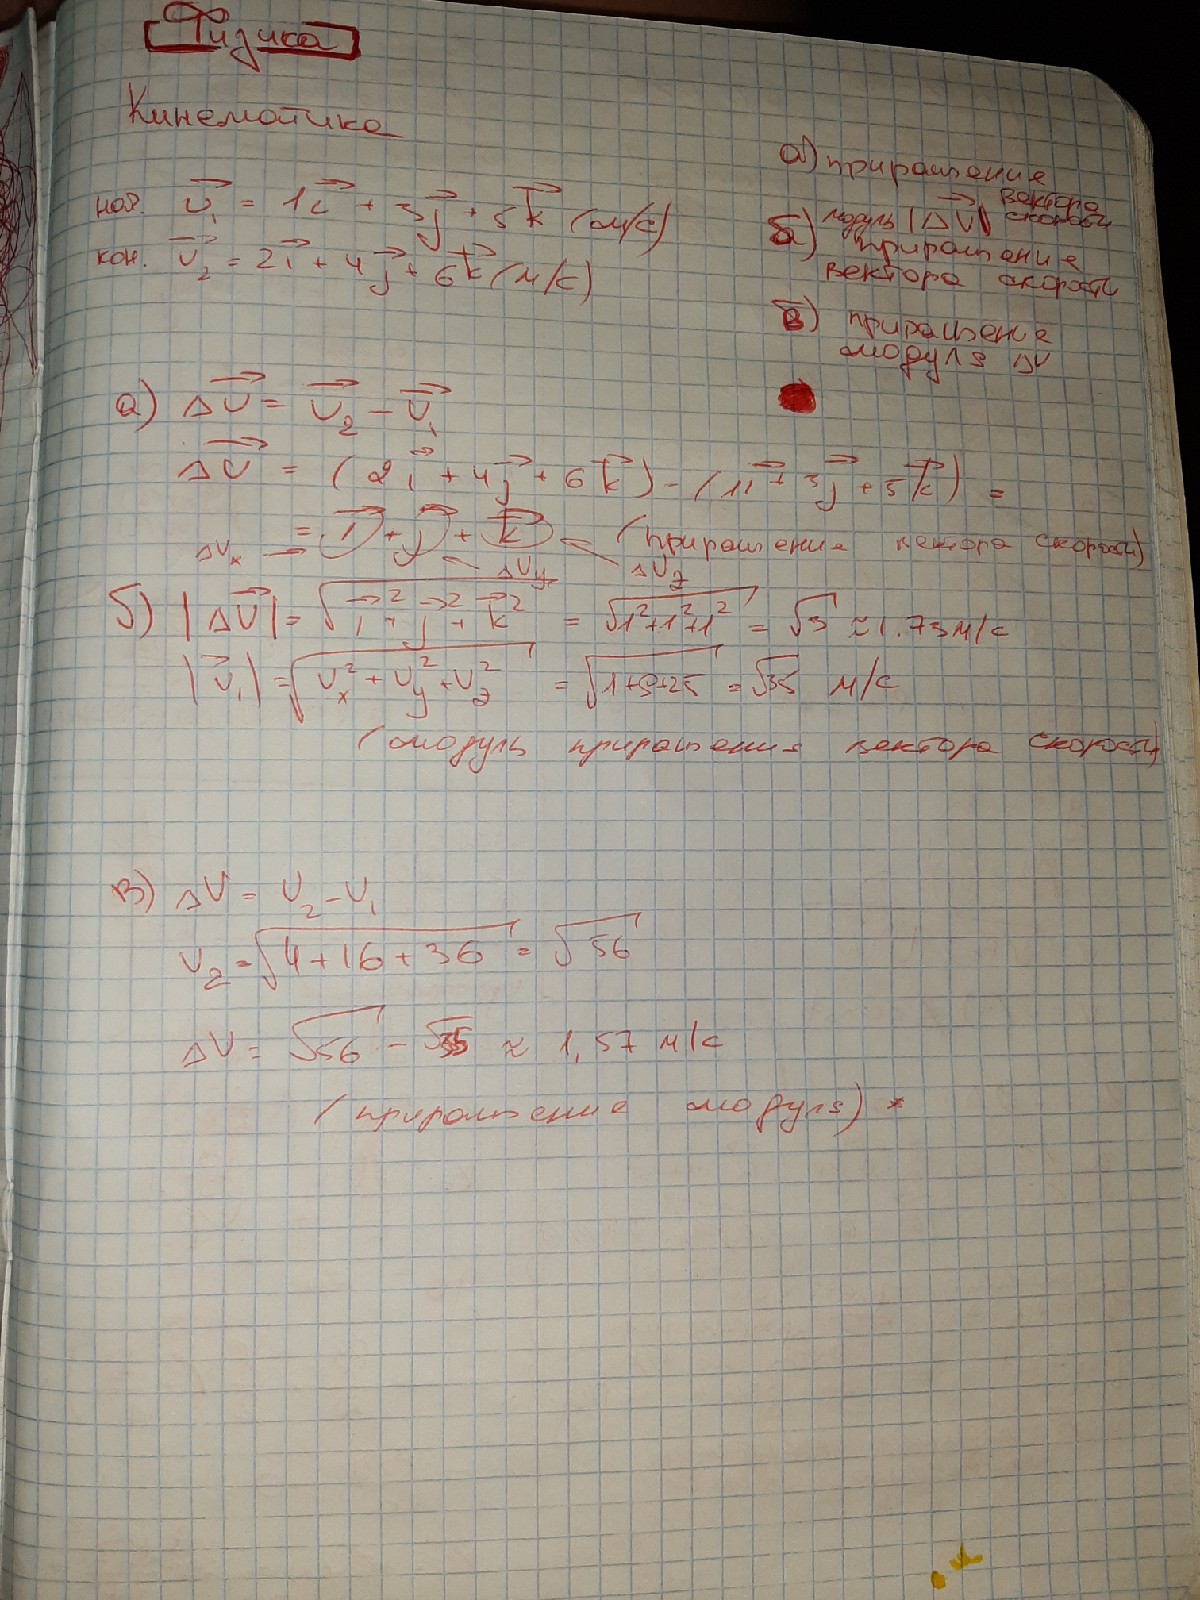 Физика
Кинематика
нач. v₁ = 1i + 3j + 5k (м/с)
кон. v₂ = 2i + 4j + 6k (м/с)
а) приращение
вектора
скорости
б) модуль |ΔV|
приращение
вектора скорости
в) приращение
модуля ΔV
а) ΔV = V₂ - V₁
ΔV = (2i + 4j + 6k) - (1i + 3j + 5k) =
= i + j + k (приращение вектора скорости)
ΔVx ΔVy ΔVz
б) |ΔV| = √i² + j² + k² = √1²+1²+1² = √3 ≈ 1.73 м/с
|V₁| = √Vx² + Vy² + Vz² = √1+9+25 = √35 м/с
(модуль приращения вектора скорости)
в) ΔV = V₂ - V₁
V₂ = √4+16+36 = √56
ΔV = √56 - √35 ≈ 1,57 м/с
(приращение модуля) *